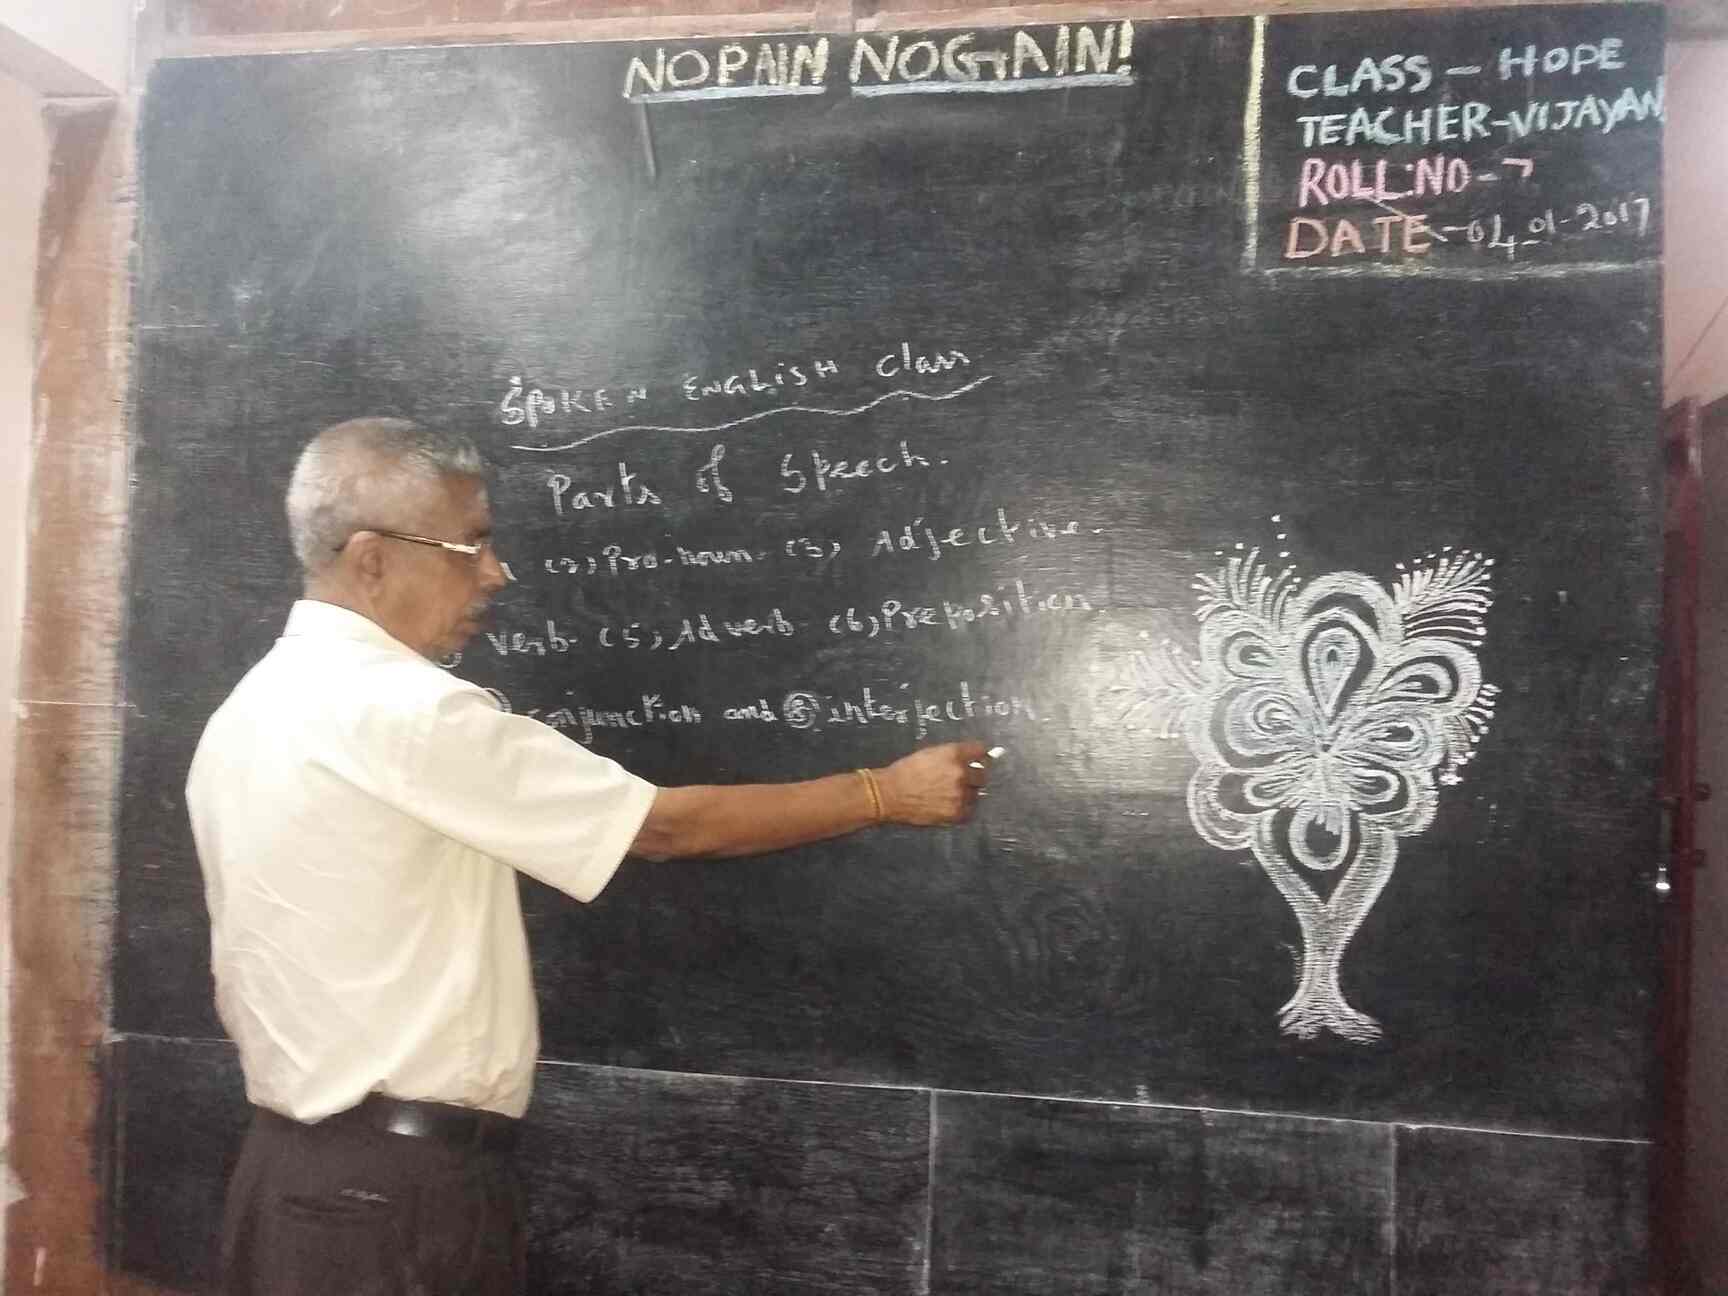 NO PAIN NO GAIN!
CLASS - HOPE
TEACHER-VIJAYAN
ROLL:NO-7
DATE-04-01-2017
SPOKEN ENGLISH Class
Parts of Speech.
(2) Pro-noun. (3) Adjective.
Verb (5) Adverb (6) Preposition.
conjunction and (8) interjection.